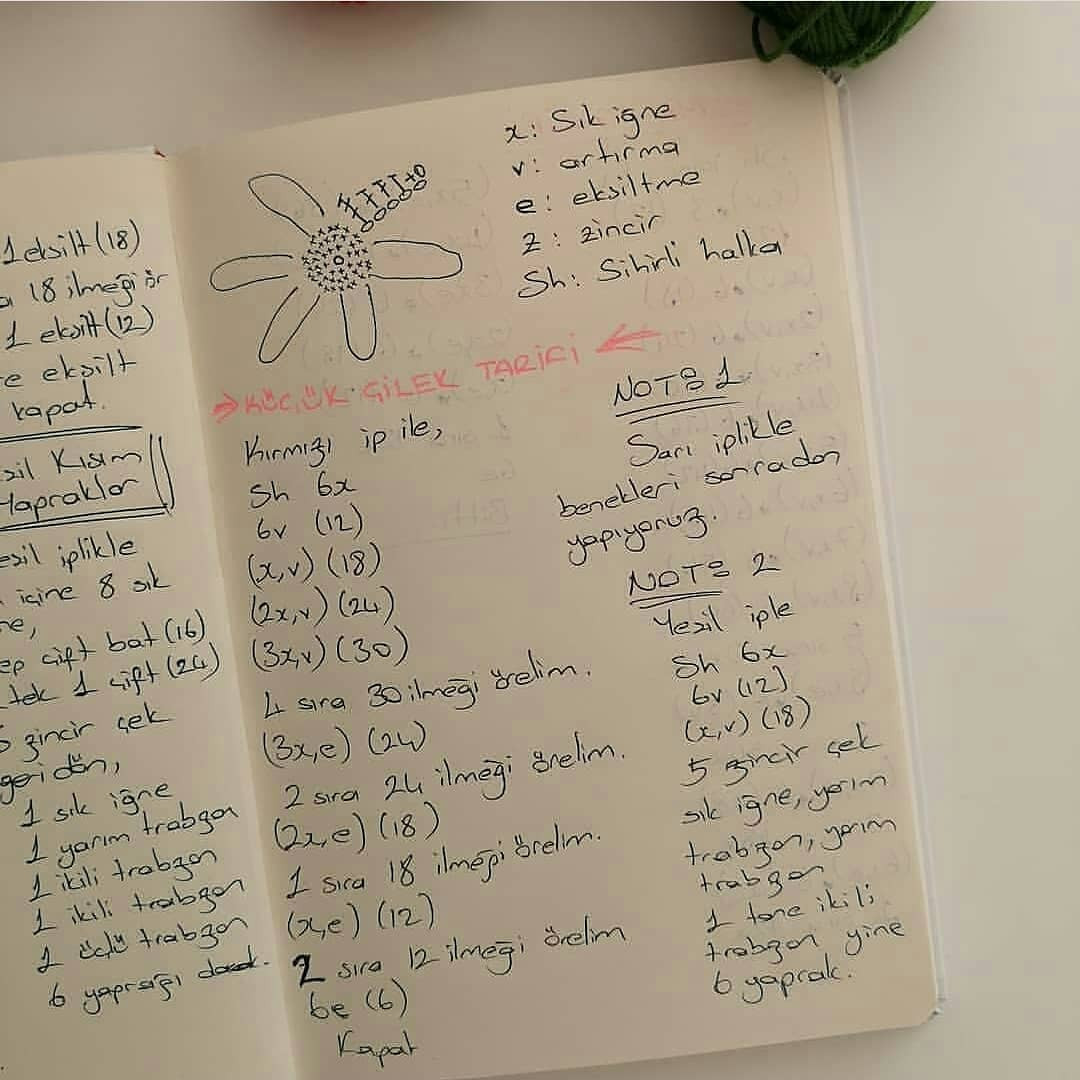 1 eksilt (18)
18 ilmeği ör
1 eksilt (12)
e eksilt
kapat.
şil Kısım
Yapraklar
eşil iplikle
içine 8 sık
ne,
ep çift bat (16)
tek 1 çift (24)
5 zincir çek
geri dön,
1 sık iğne
1 yarım trabzan
1 ikili trabzan
1 ikili trabzan
1 üçlü trabzan
6 yaprağı
x: Sık iğne
v: artırma
e: eksiltme
z: zincir
Sh: Sihirli halka
KÜÇÜK ÇİLEK TARİFİ
Kırmızı ip ile,
Sh 6x
6v (12)
(x,v) (18)
(2x,v) (24)
(3x,v) (30)
4 sıra 30 ilmeği örelim.
(3x,e) (24)
2 sıra 24 ilmeği örelim.
(2x,e) (18)
1 sıra 18 ilmeği örelim.
(x,e) (12)
2 sıra 12 ilmeği örelim
6e (6)
Kapat
NOT: 1
Sarı iplikle
benekleri sonradan
yapıyoruz.
NOT: 2
Yeşil iple
Sh 6x
6v (12)
(x,v) (18)
5 zincir çek
sık iğne, yarım
trabzan, yarım
trabzan
1 tane ikili
trabzan yine
6 yaprak.